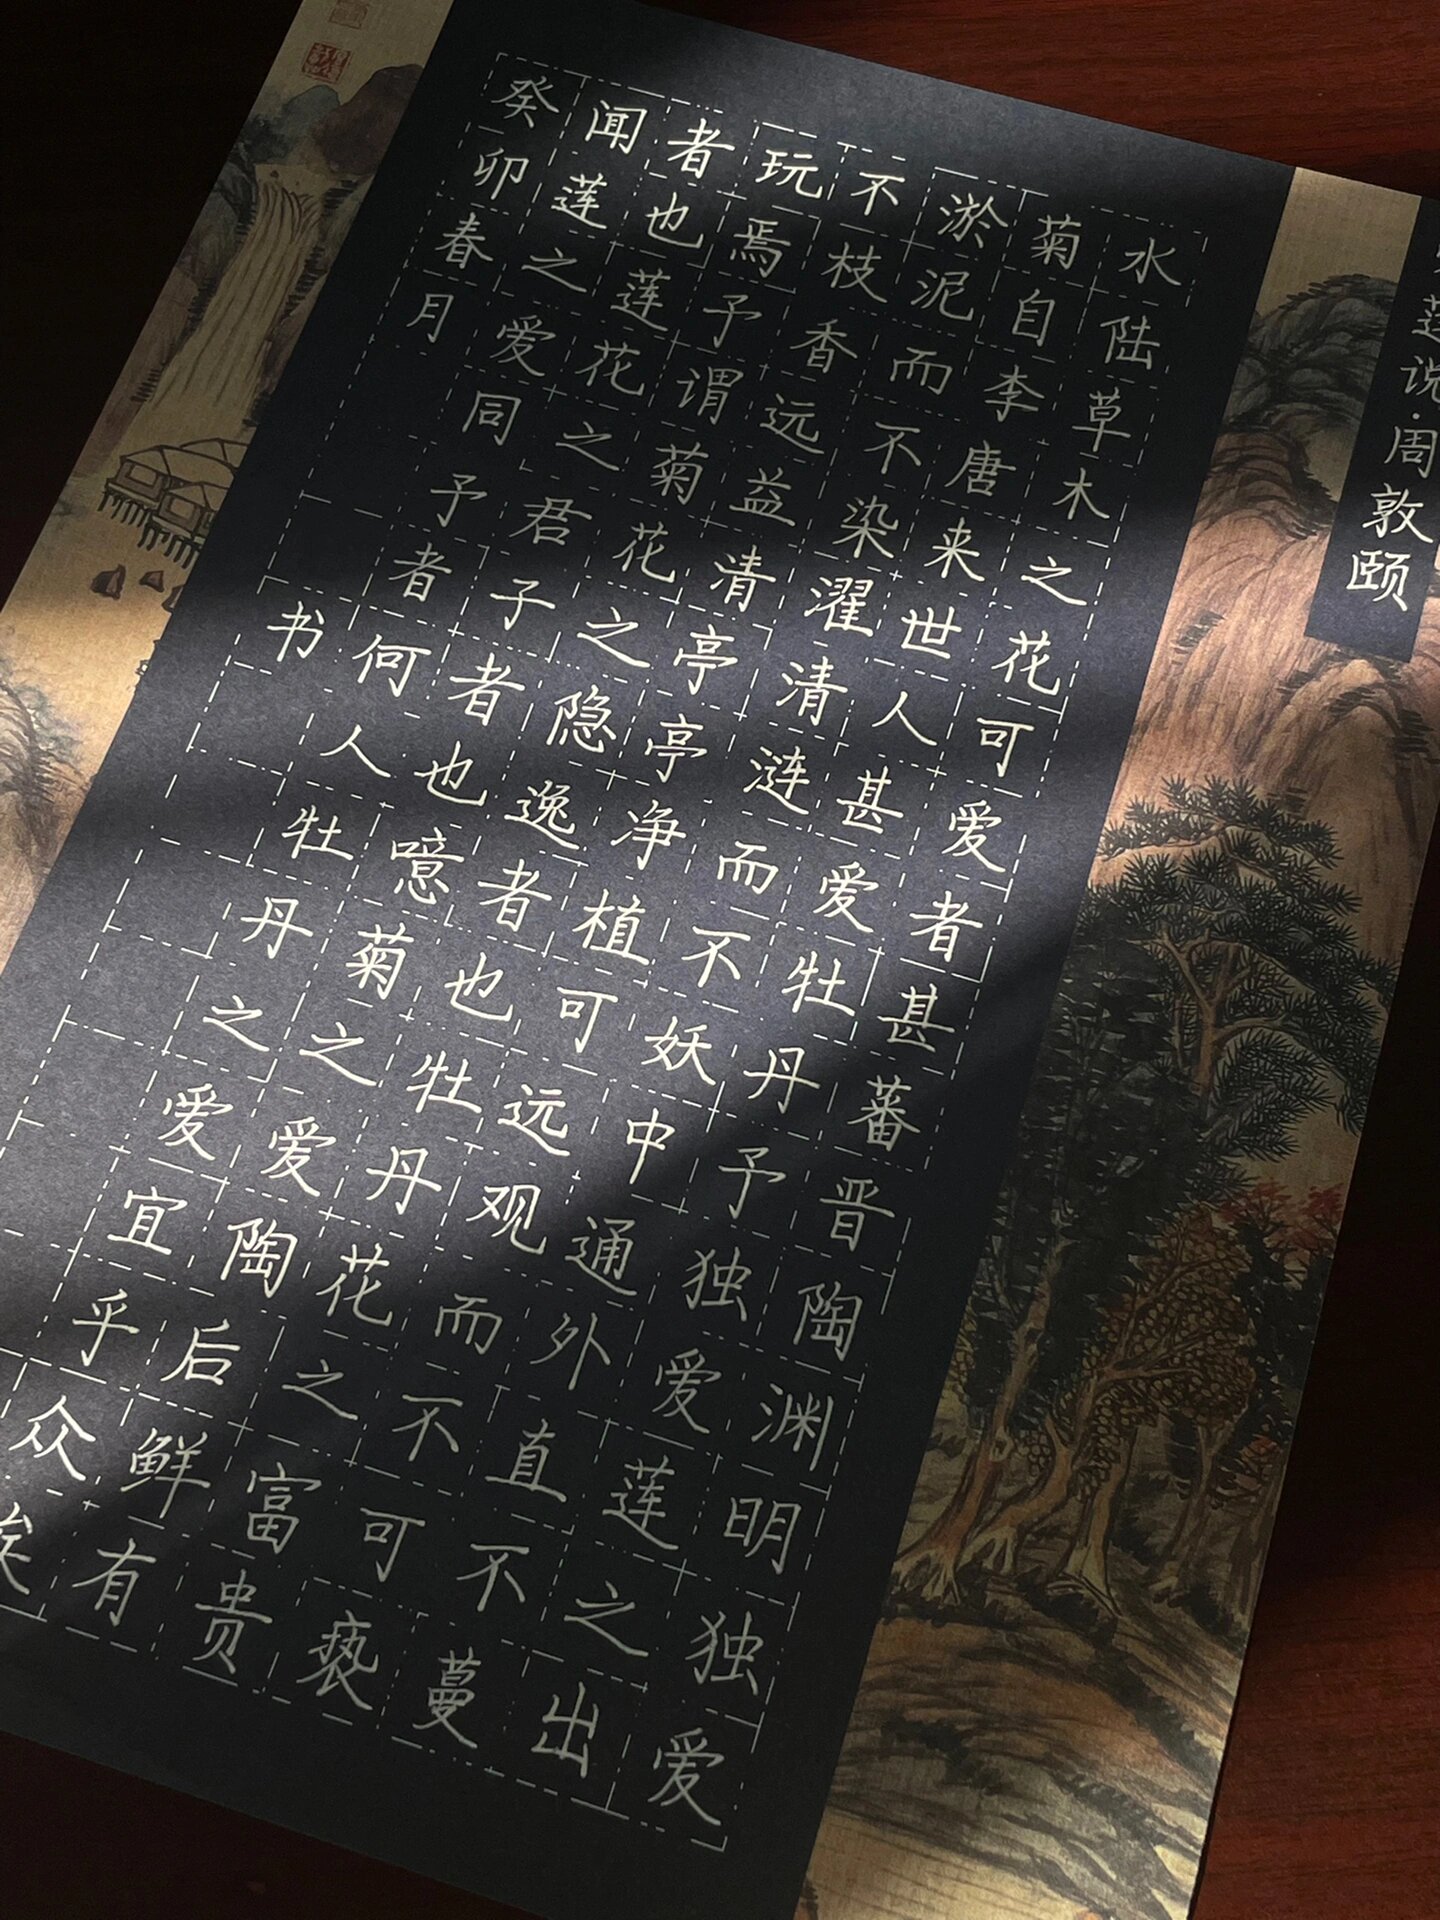 莲说·周敦颐
水陆草木之花可爱者甚蕃晋陶渊明独爱
菊自李唐来世人甚爱牡丹予独爱莲之出
淤泥而不染濯清涟而不妖中通外直不蔓
不枝香远益清亭亭净植可远观而不可亵
玩焉予谓菊花之隐逸者也牡丹花之富贵
者也莲花之君子者也噫菊之爱陶后鲜有
闻莲之爱同予者何人牡丹之爱宜乎众矣
癸卯春月 书